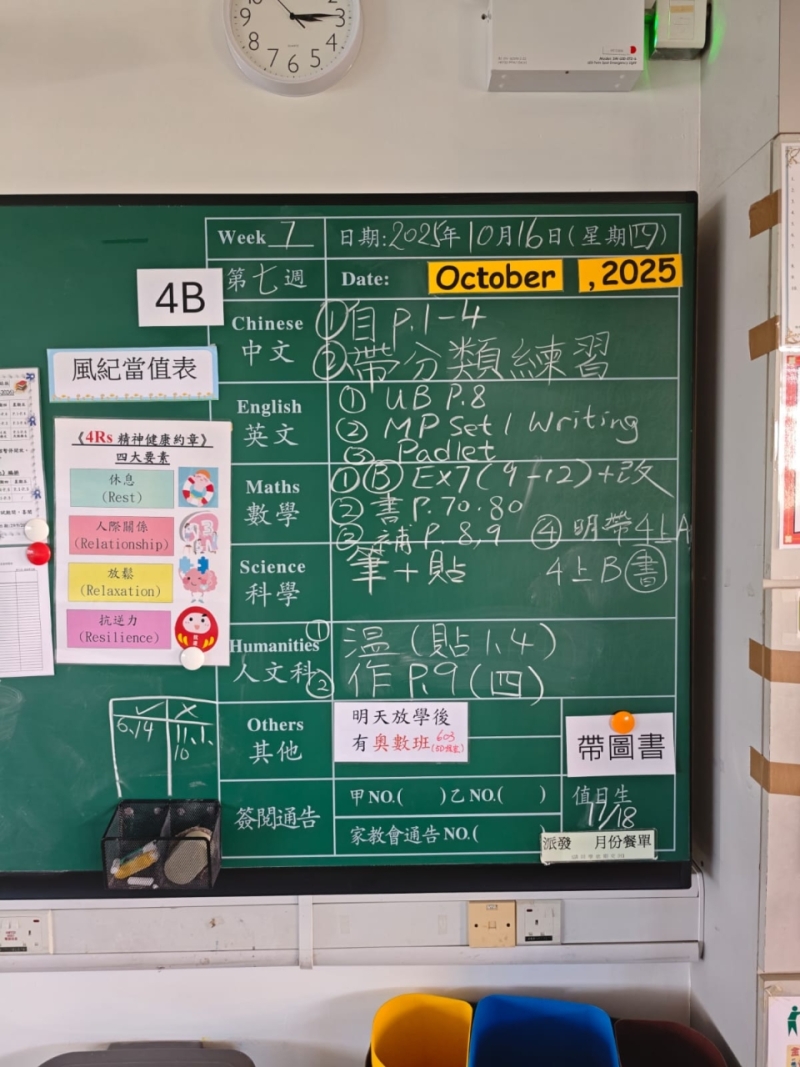 10 2
9 3
8 4
7 6 5
Week 7 日期:2025年10月16日(星期四)
第七週 Date: October , 2025
4B
Chinese
中文
①自 P.1-4
②帶分類練習
風紀當值表
English
英文
① UB P.8
② MP Set 1 Writing
③ Padlet
《4Rs 精神健康約章》
四大要素
休息
(Rest)
人際關係
(Relationship)
放鬆
(Relaxation)
抗逆力
(Resilience)
Maths
數學
① Ⓑ EX7(9-12)+改
② 書 P.70.80
③ 補 P.8,9 ④ 明帶4上A
4上B書
Science
科學
筆+貼
Humanities
人文科
① 溫(貼1.4)
② 作 P.9(四)
✓ ✗
6,14 11,1,
10
Others
其他
明天放學後
有奧數班 603
帶圖書
簽閱通告
甲NO.( )乙NO.( )
家教會通告NO.( )
值日生
17/18
派發 月份餐單